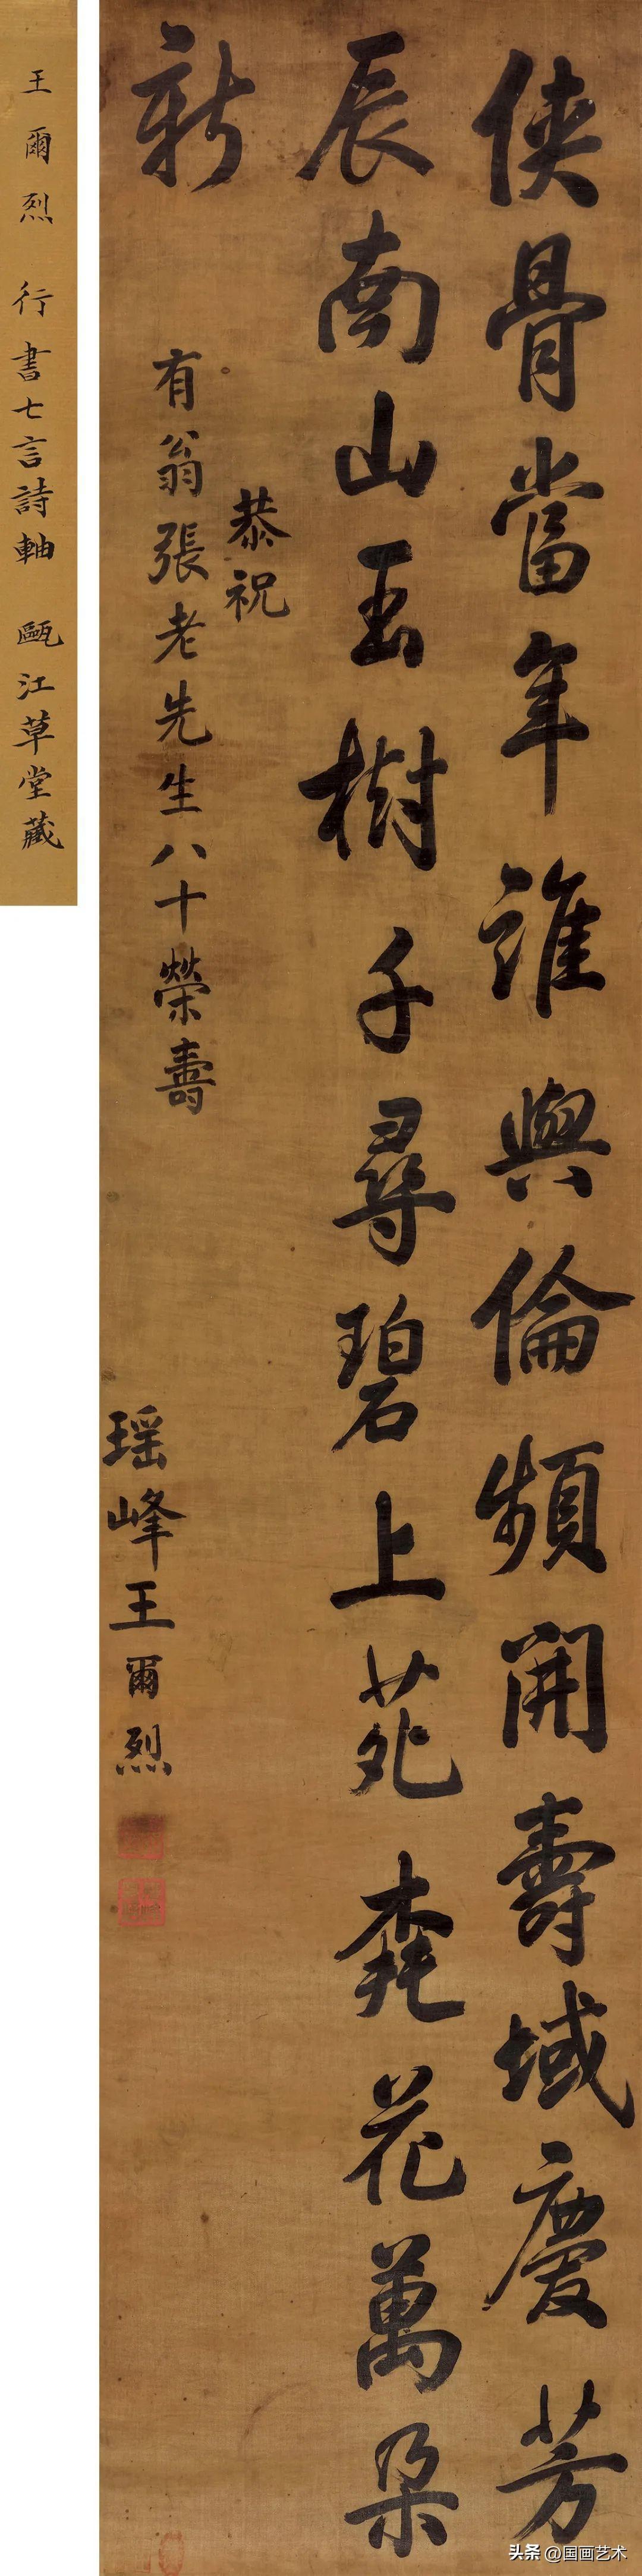 俠骨當年誰與倫頻開壽域慶芳
辰南山玉樹千尋碧上苑桃花萬朵
新
恭祝
有翁張老先生八十榮壽
瑶峰王爾烈
王爾烈 行書七言詩軸 甌江草堂藏
头条 @国画艺术